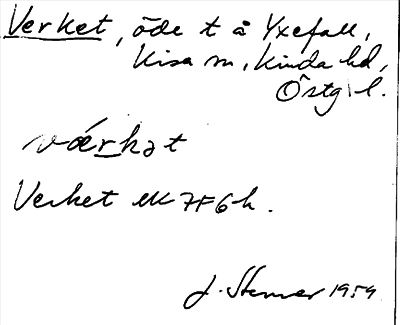 Verket, öde t å Yxefall,
Kisa sn, Kinda hd,
Östg. l.
værkət
Verket ek 7F6h.
J. Stemer 1959